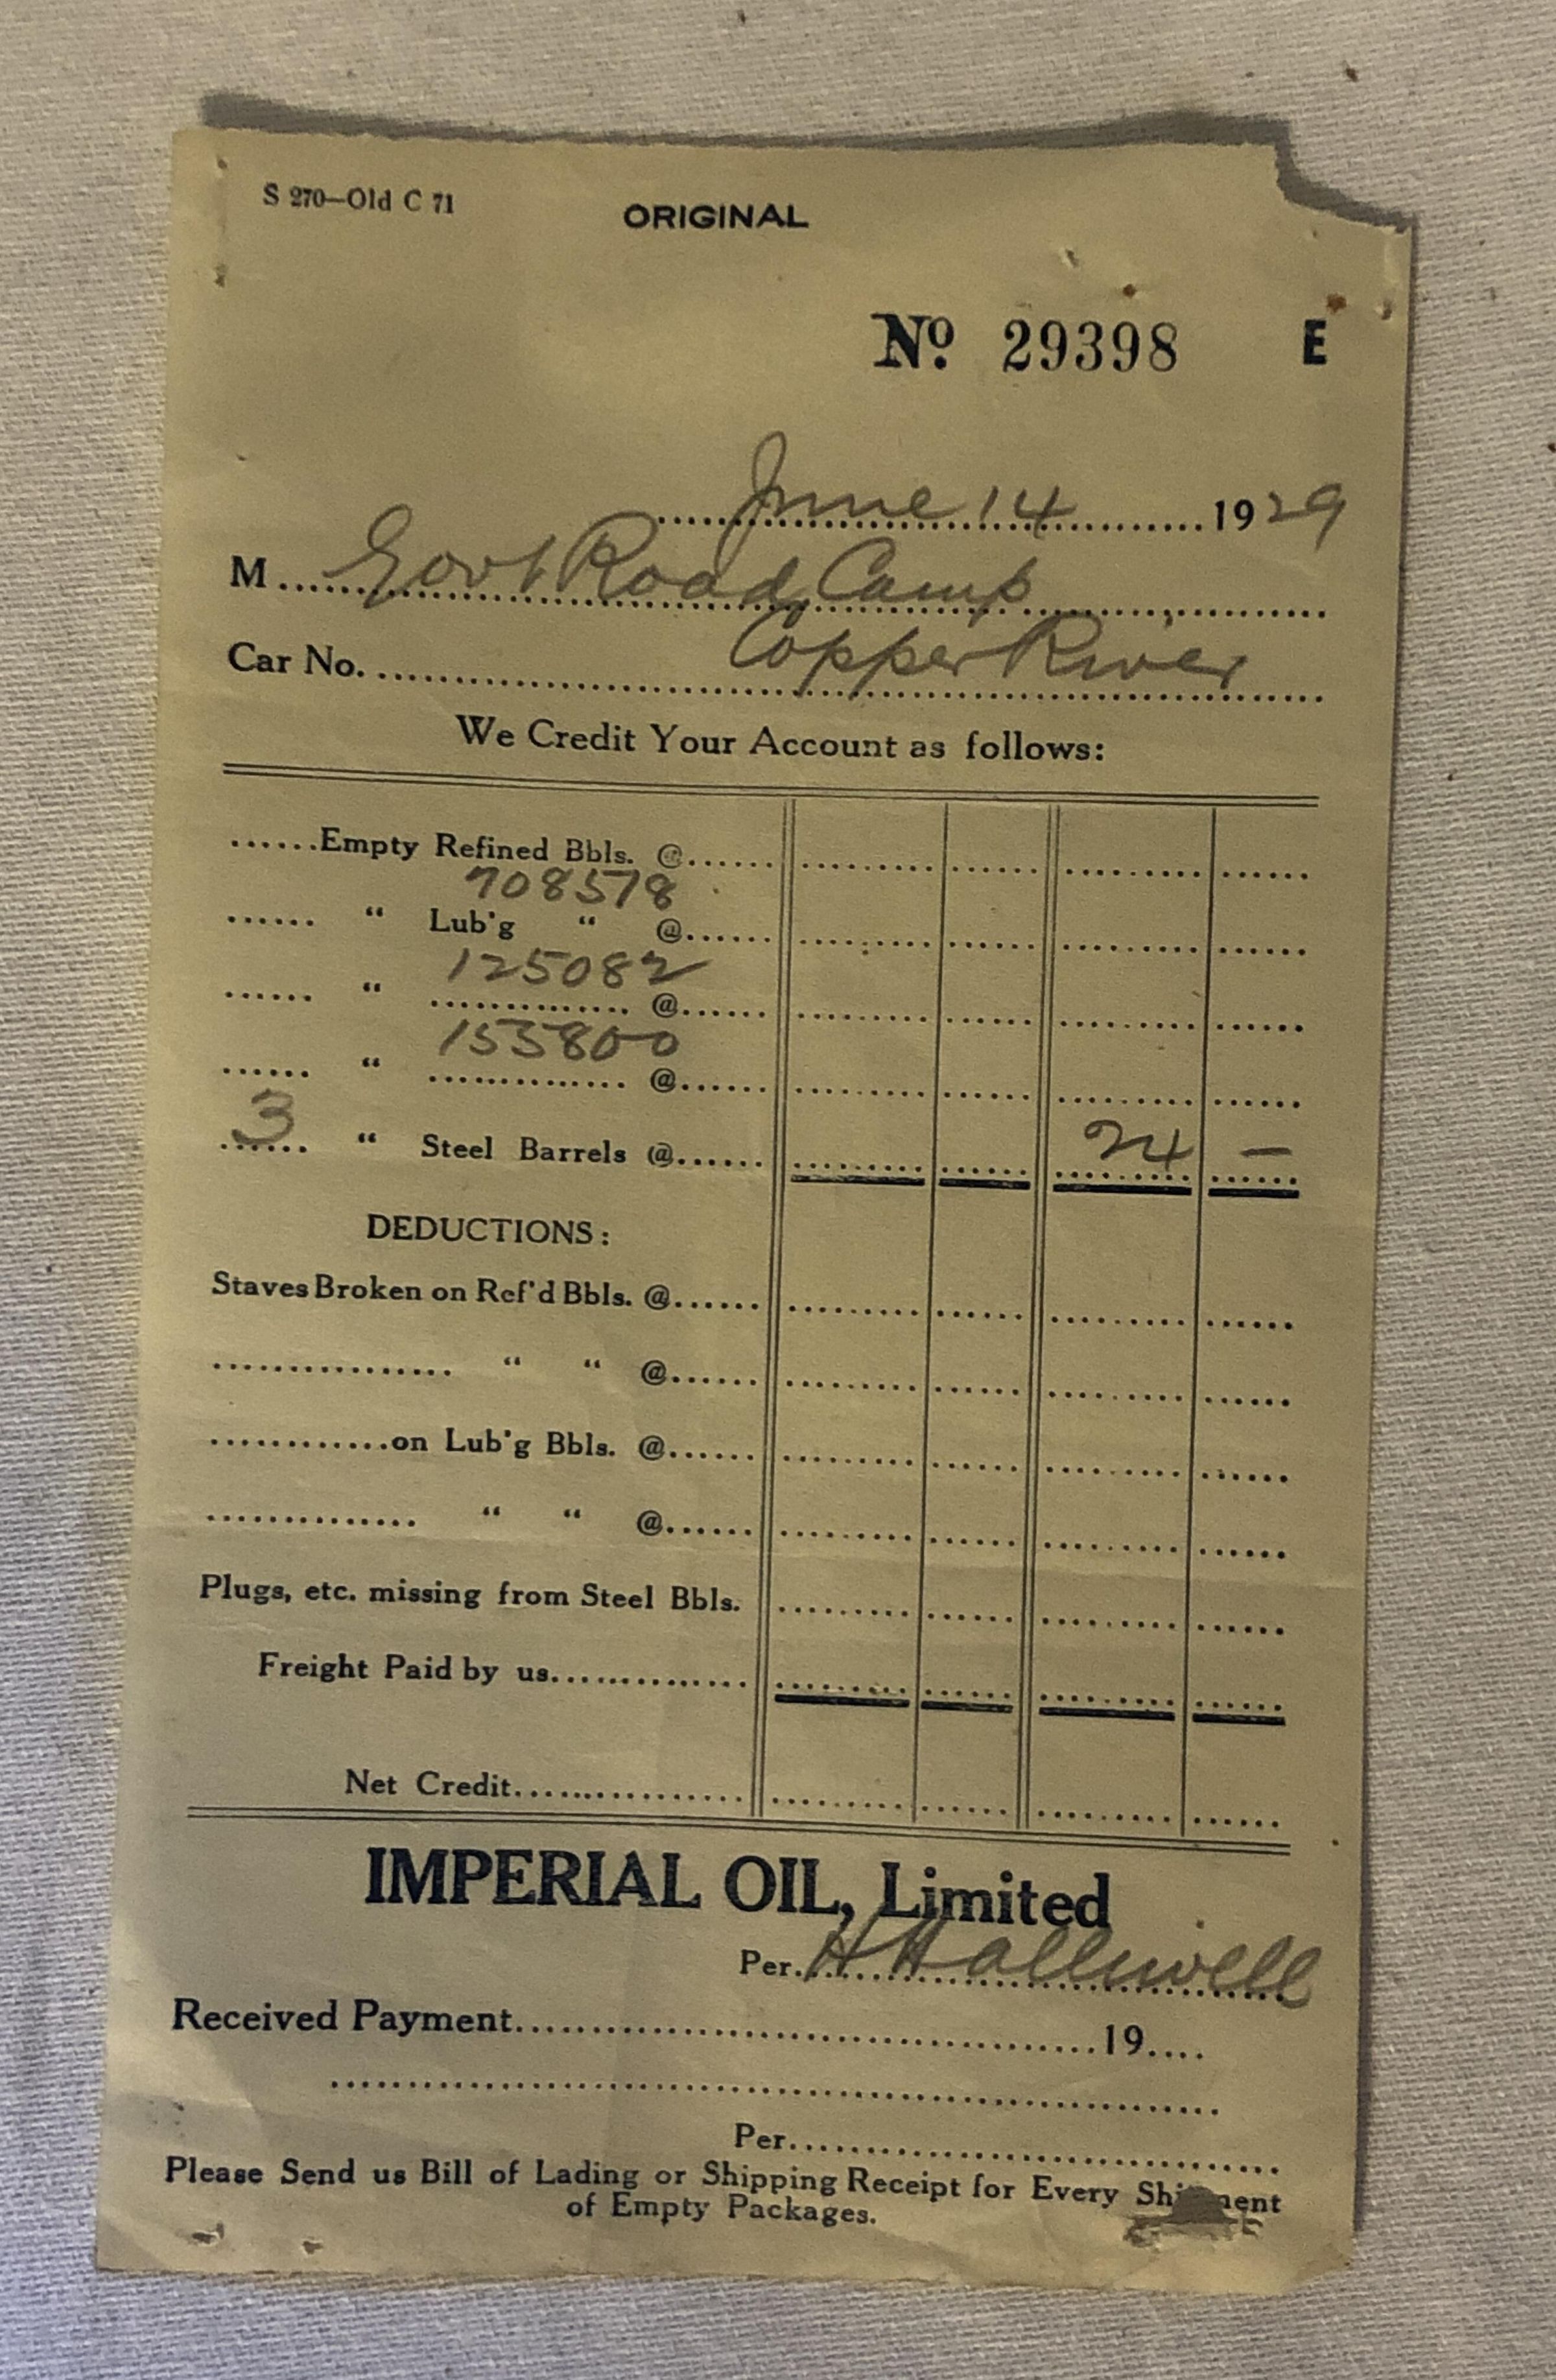 S 270—Old C 71
ORIGINAL
No. 29398 E
June 14 1929
M....Govt Road Camp
Car No. Copper River
We Credit Your Account as follows:
......Empty Refined Bbls. @......
708578
...... “ Lub'g “ @......
125082
...... “ .............. @......
155800
...... “ .............. @......
3 “ Steel Barrels @...... 24 —
DEDUCTIONS:
Staves Broken on Ref'd Bbls. @......
................ “ “ @......
............on Lub'g Bbls. @......
.............. “ “ @......
Plugs, etc. missing from Steel Bbls.
Freight Paid by us...............
Net Credit..................
IMPERIAL OIL, Limited
Per. H Halliwell
Received Payment........................................19....
Per.................................
Please Send us Bill of Lading or Shipping Receipt for Every Shipment
of Empty Packages.